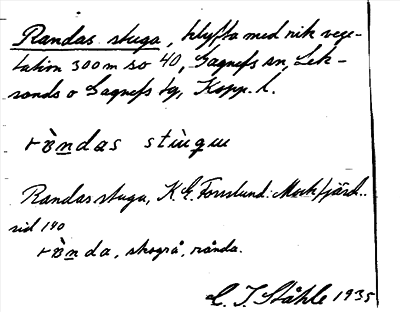 Randas stuga, klyfta med rik vege-
tation 300 m so 40, Gagnefs sn, Lek-
sands o Gagnefs tg, Kopp. l.
rὰndas stùgu
Randas stuga, K. E. Forsslund:
sid 140
rὰnda, skogrå, rånda.
C. I. Ståhle 1935